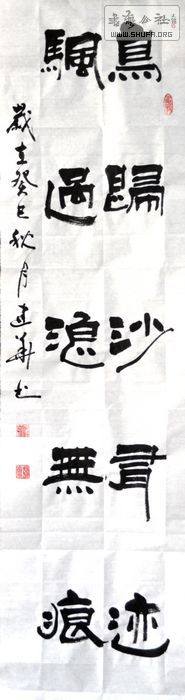 WWW.SHUFA.ORG
鳥歸沙有迹
颿過浪無痕
歲在癸巳秋月建華书